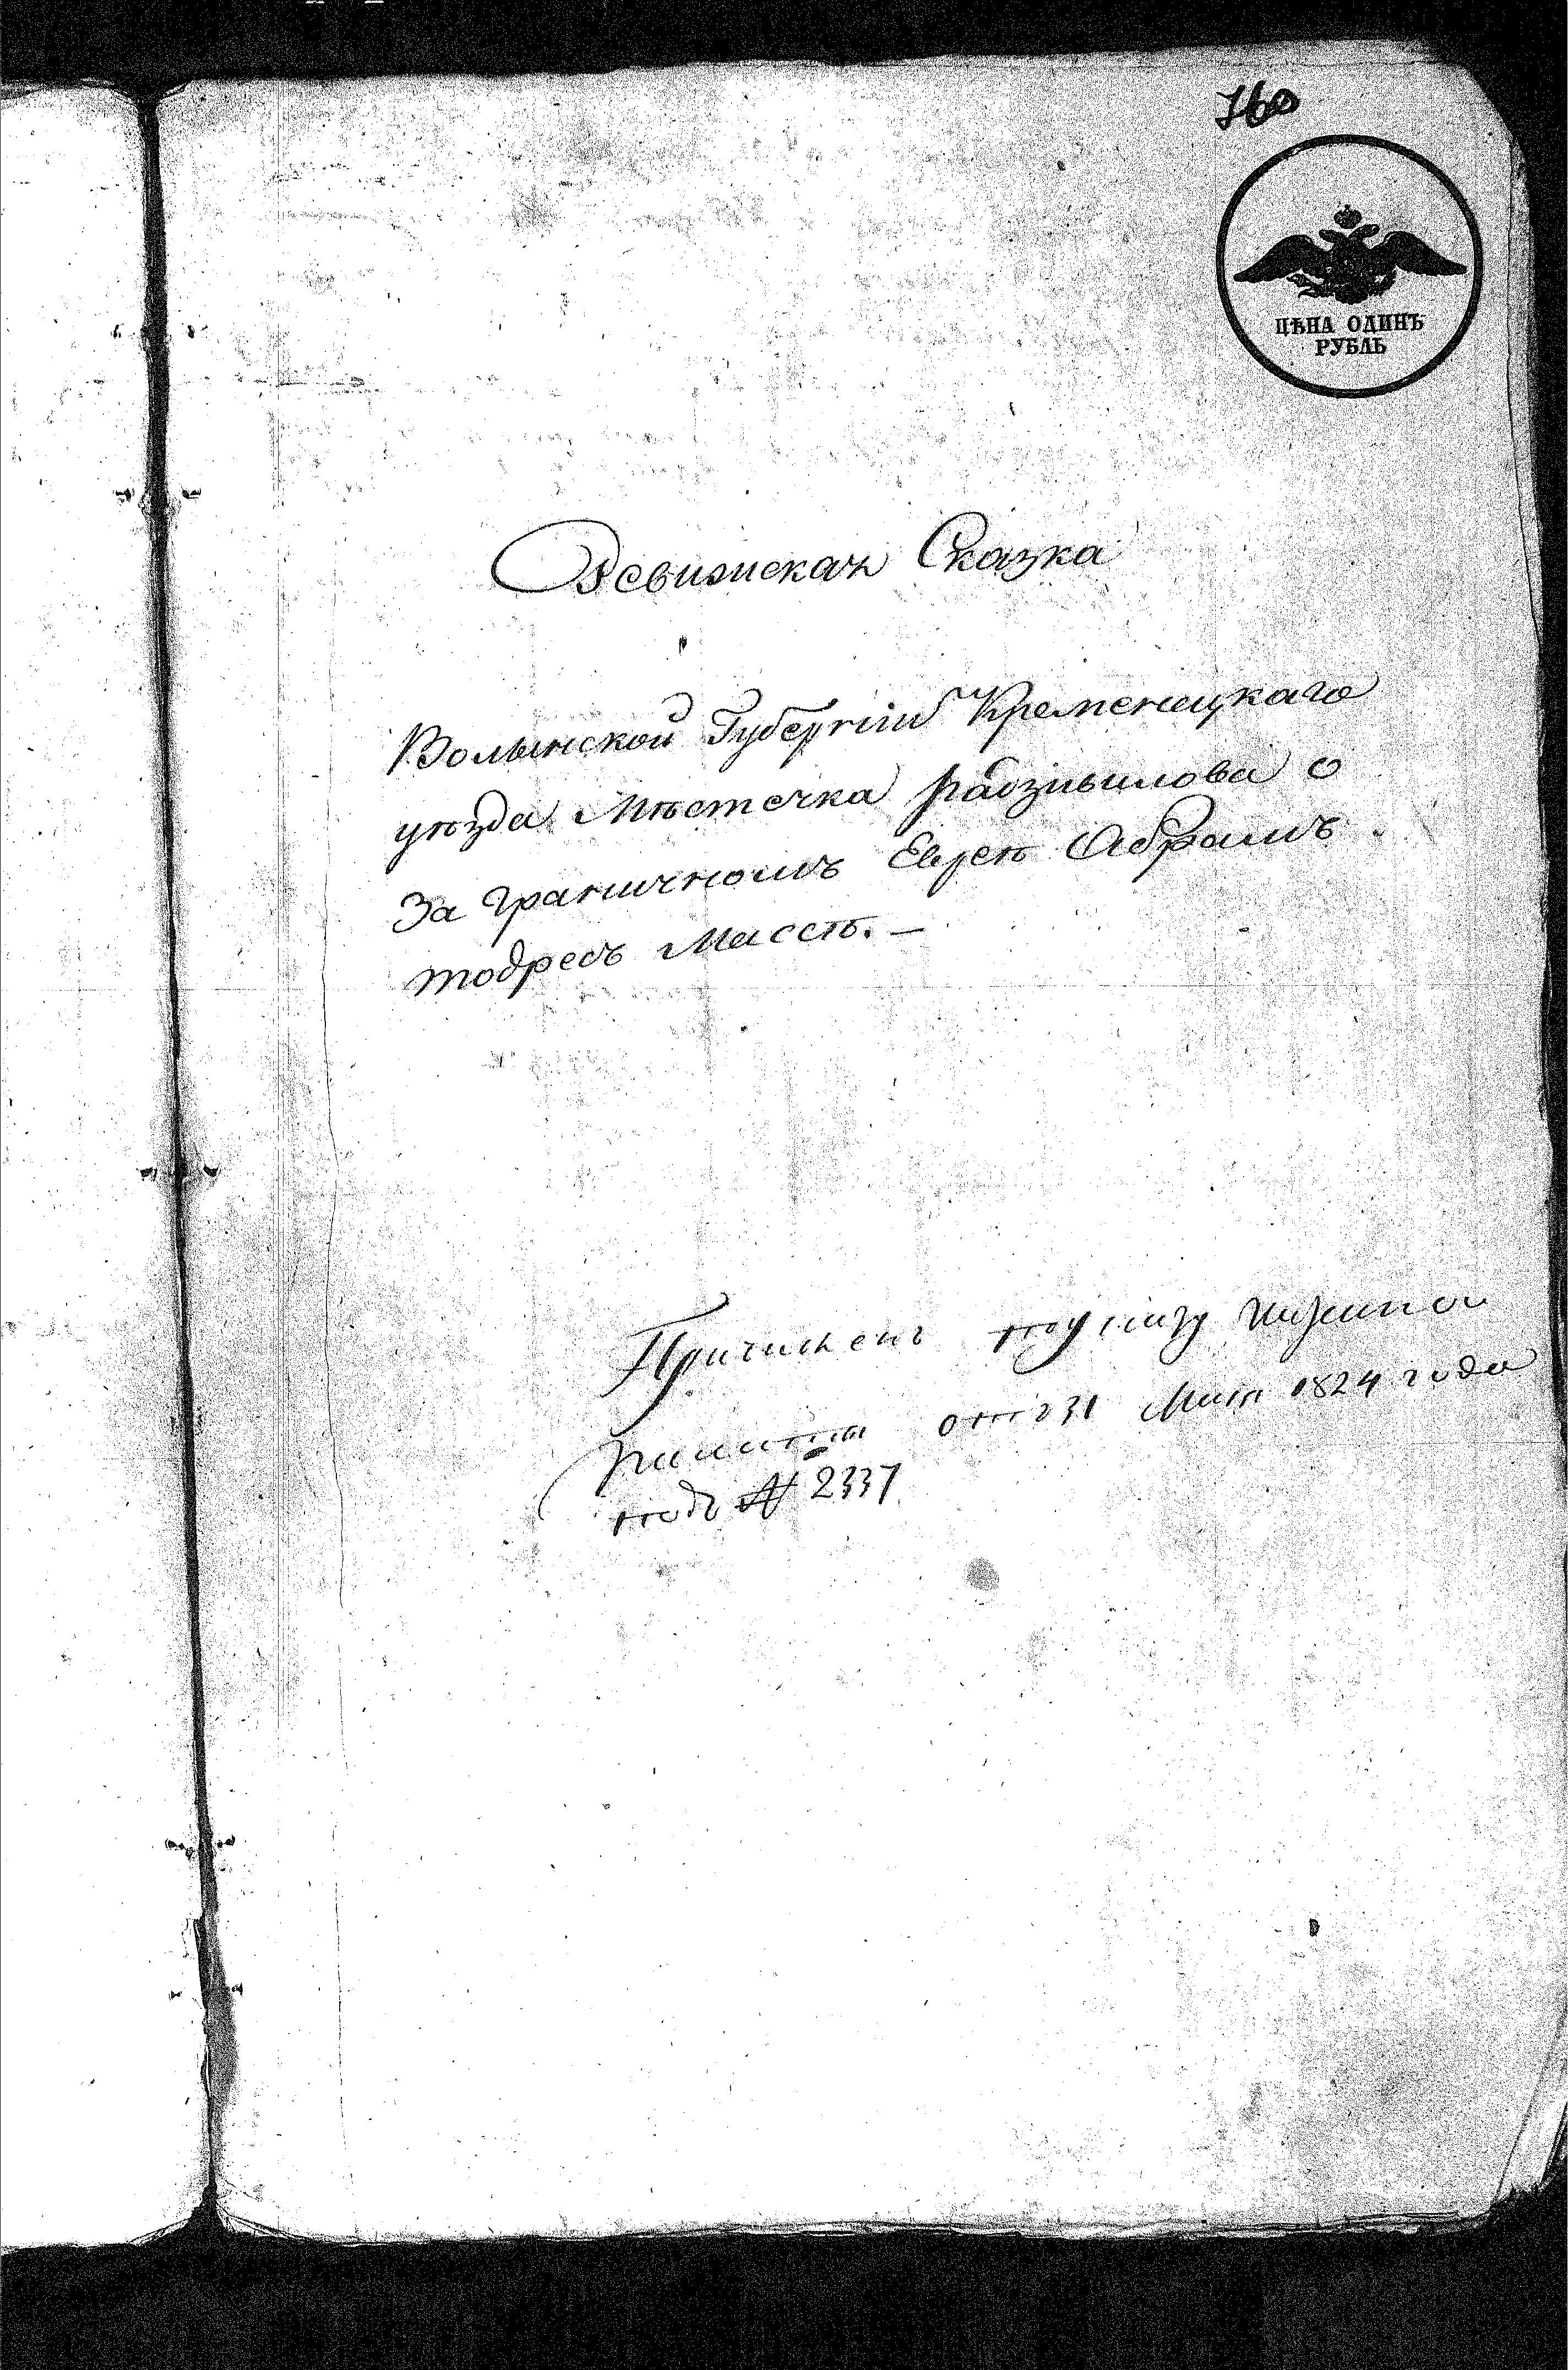 760
ЦѢНА ОДИНЪ
РУБЛЬ
Ревизская Сказка
Волынской Губерніи Кременецкаго
уѣзда Мѣстечка Радзивилова о
За граничномъ Евреѣ Абрамъ
тодресъ Массѣ. —
Причисленъ по указу
палаты отъ 31 Мая 1824 года
подъ № 2337